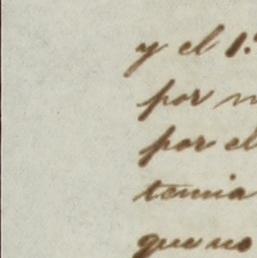 y el 1.
por
por el
tenia
que no